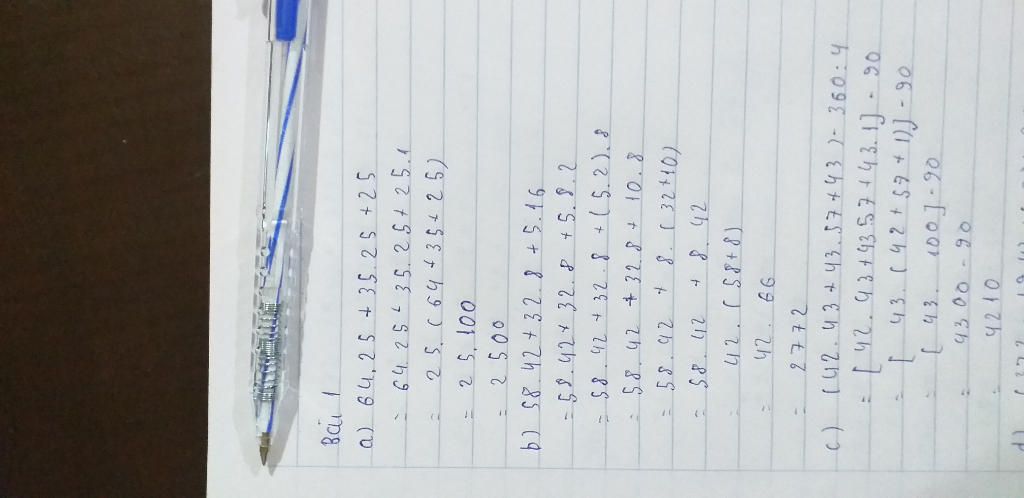 Bài 1
a) 64.25 + 35.25 + 25
= 64.25 + 35.25 + 25.1
= 25.(64+35+25)
= 25.100
= 2500
b) 58.42+32.8+5.16
= 58.42+32.8+5.8.2
= 58.42+32.8+(5.2).8
= 58.42+32.8+10.8
= 58.42+8.(32+10)
= 58.42+8.42
= 42.(58+8)
= 42.66
= 2772
c) (42.43+43.57+43)-360:4
= [42.43+43.57+43.1]-90
= [43.(42+57+1)]-90
= [43.100]-90
= 4300-90
= 4210
d)